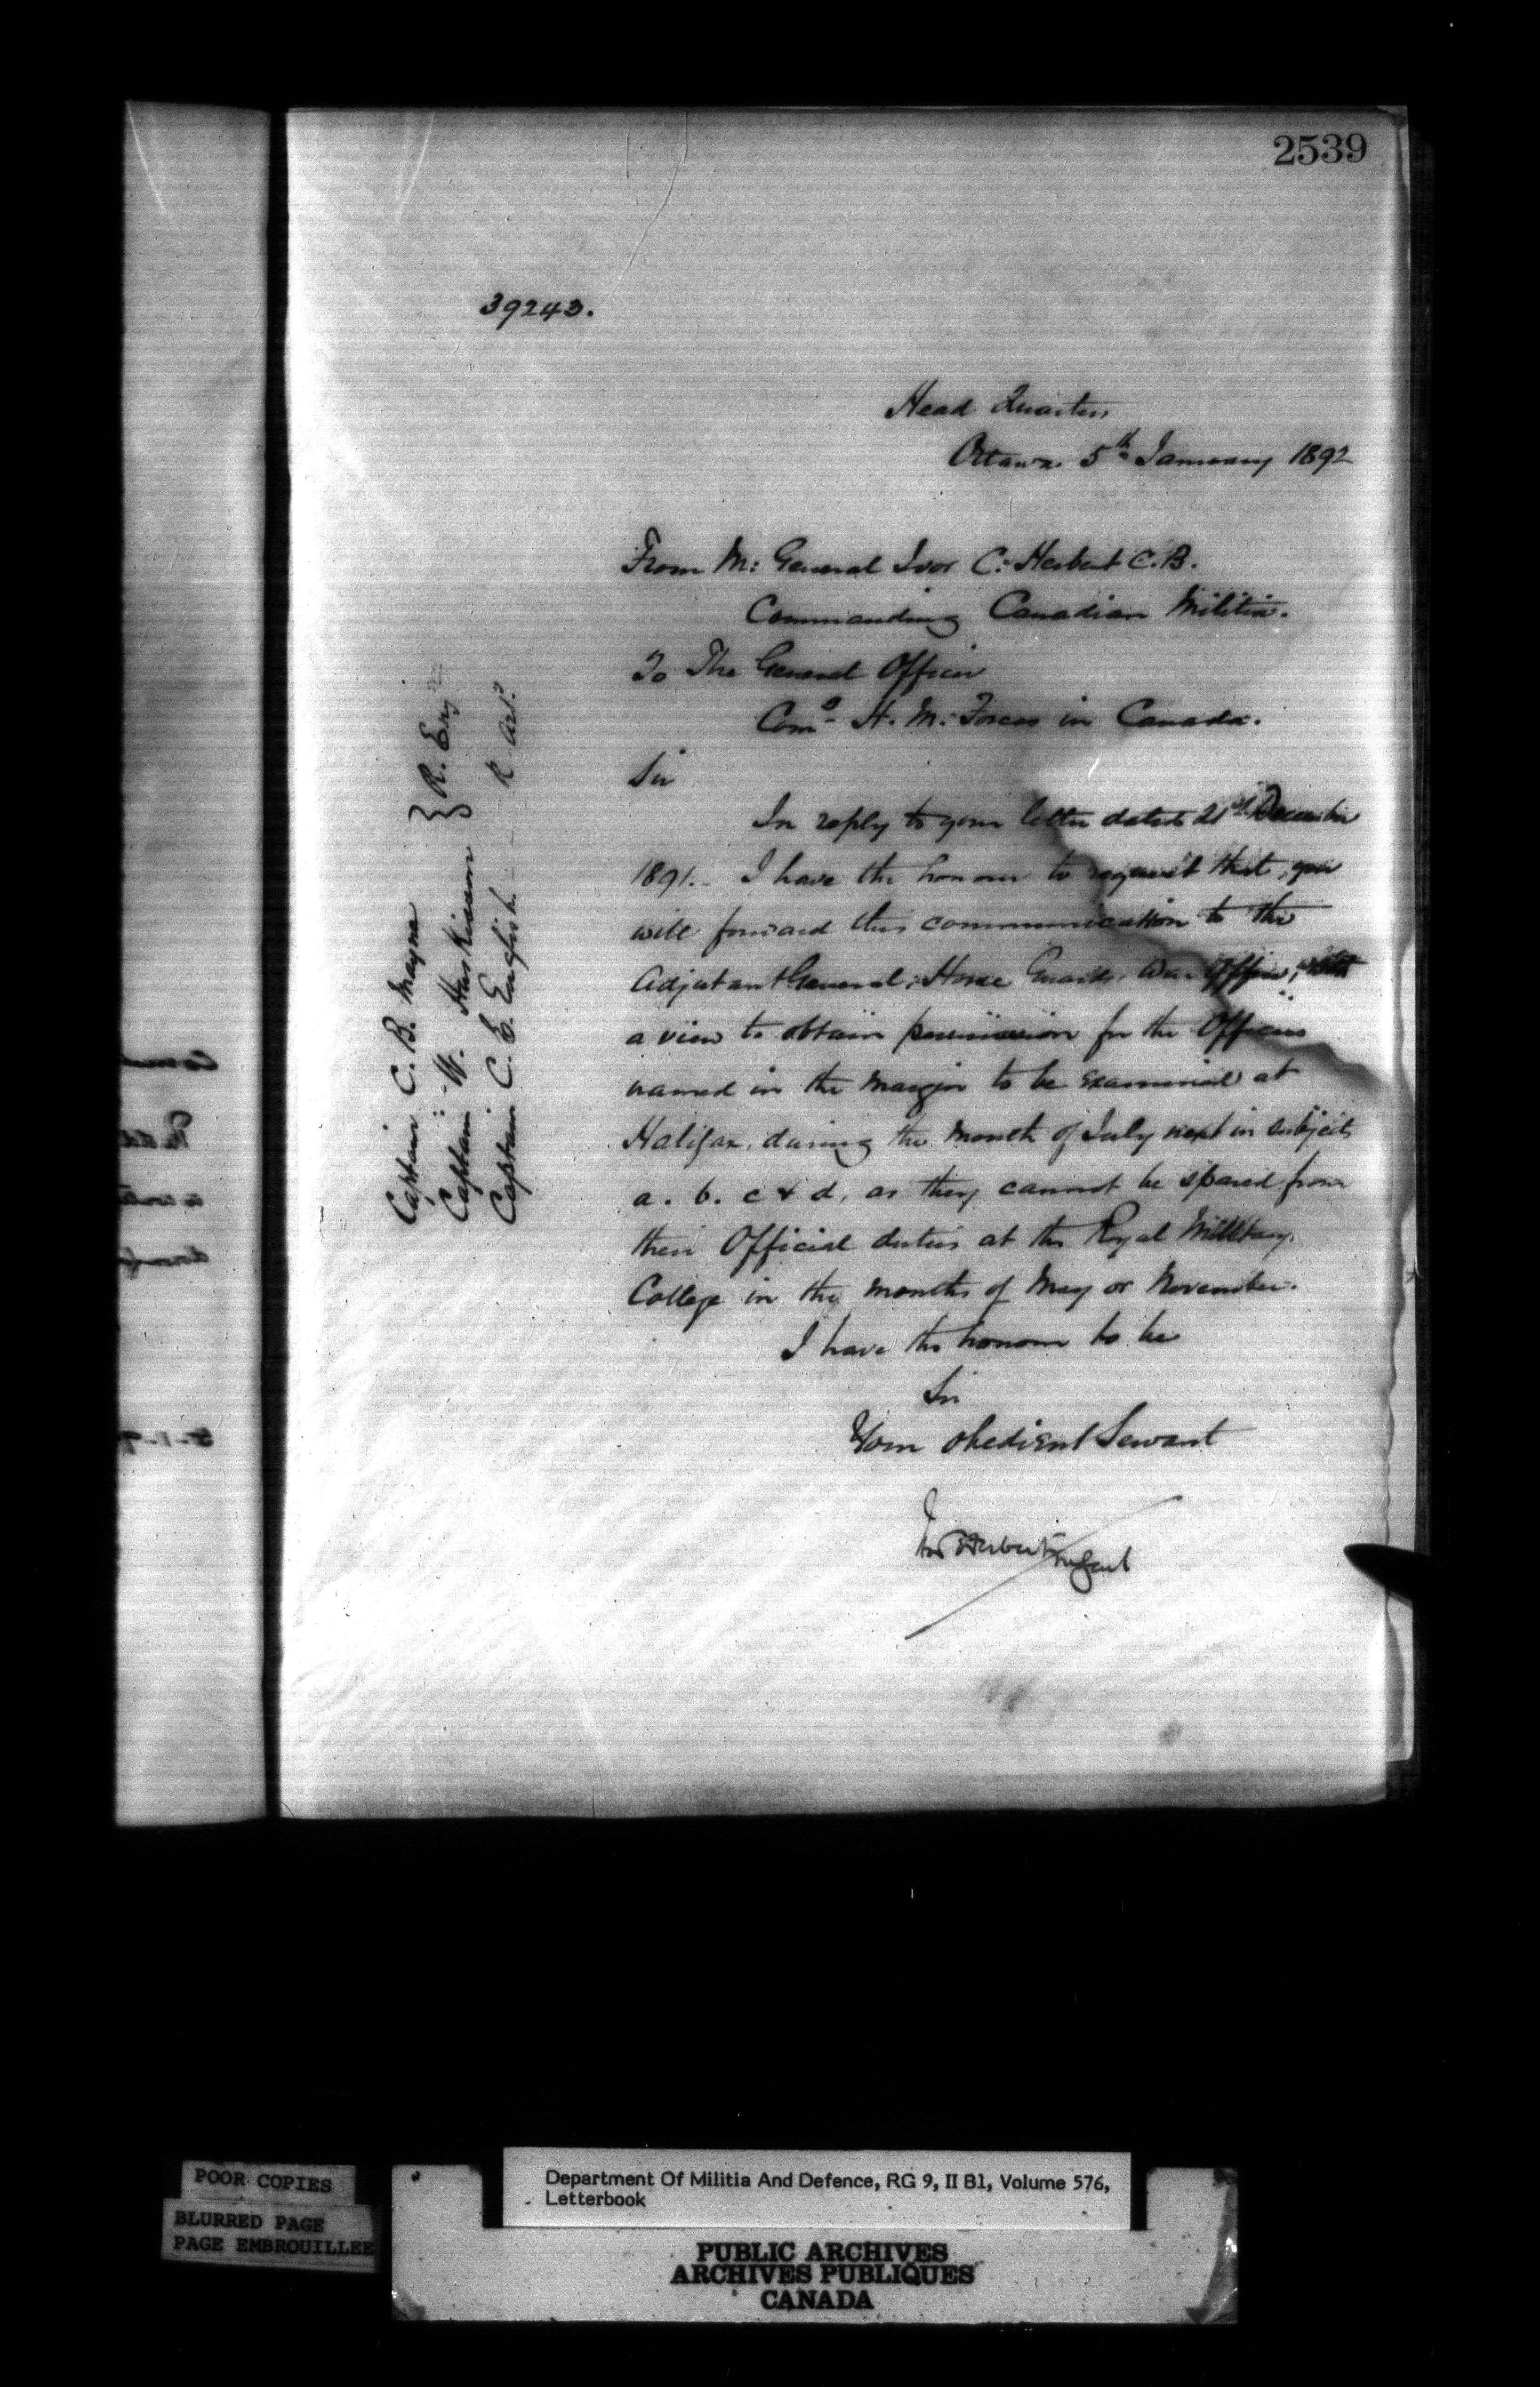 2539
39243.
Head Quarters
Ottawa 5th January 1892
From M: General Ivor C. Herbert C.B.
Commanding Canadian Militia.
To The General Officer
Comg H. M. Forces in Canada.
Sir
In reply to your letter dated 21st December
1891.- I have the honour to request that you
will forward this communication to the
Adjutant General, Horse Guards, War Office, with
a view to obtain permission for the Officers
named in the margin to be examined at
Halifax, during the month of July next in subjects
a. b. c & d, as they cannot be spared from
their Official duties at the Royal Military
College in the months of May or November.
I have the honour to be
Sir
Your obedient Servant
Ivor Herbert M Genl
Captain C. B. Mayne } R. Eng
Captain W. Huskisson
Captain C. E. English — R Art?
POOR COPIES
BLURRED PAGE
PAGE EMBROUILLEE
Department Of Militia And Defence, RG 9, II B1, Volume 576,
Letterbook
PUBLIC ARCHIVES
ARCHIVES PUBLIQUES
CANADA